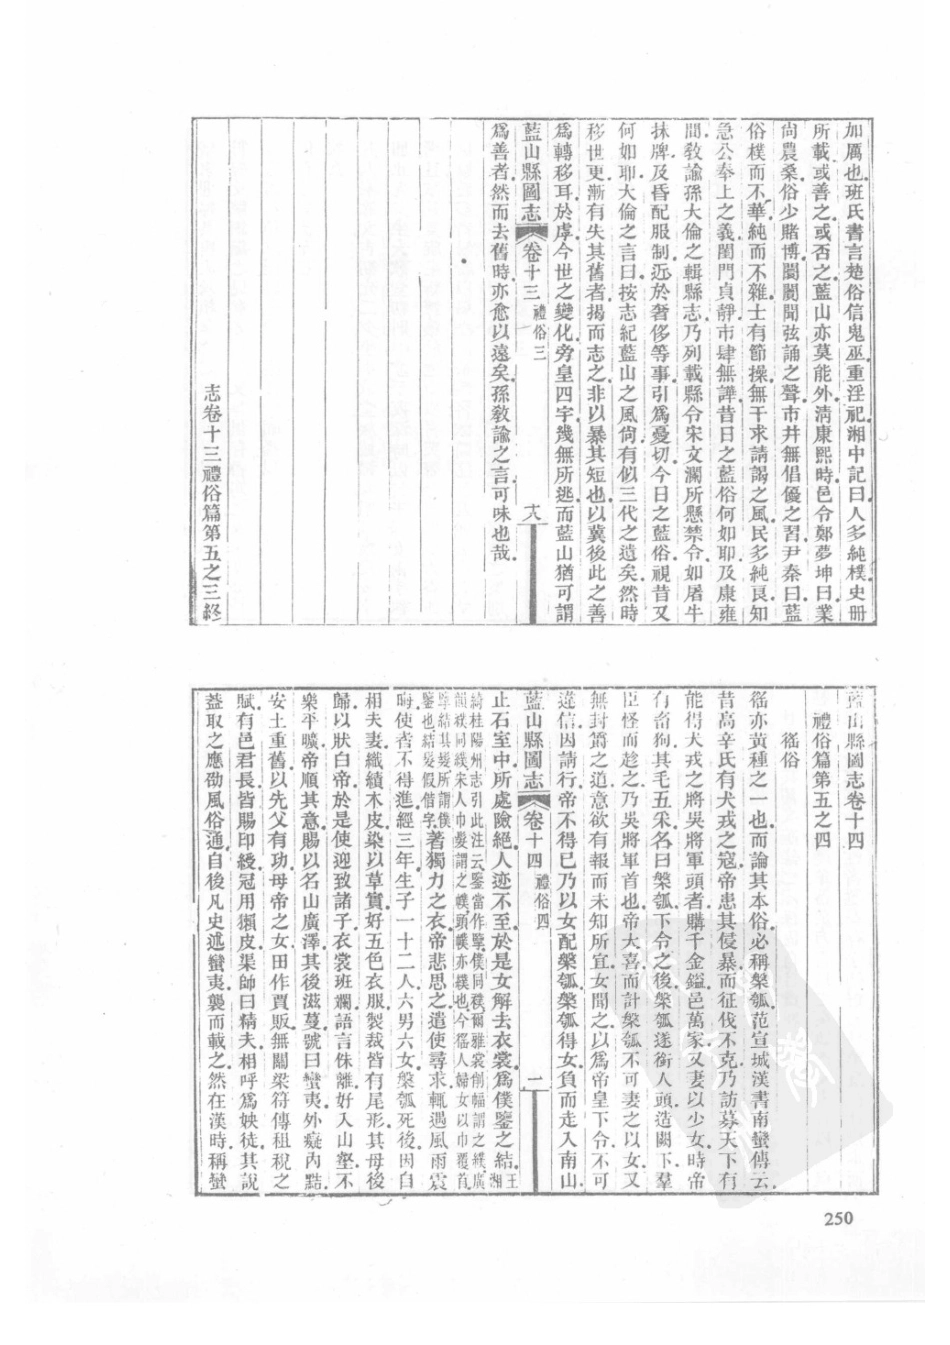 加厲也班氏書言楚俗信鬼巫重淫祀湘中記曰人多純樸史册
所載或善之或否之藍山亦莫能外清康熙時邑令鄭夢坤曰業
尙農桑俗少賭博闤闠聞弦誦之聲市井無倡優之習尹秦曰藍
俗樸而不華純而不雜士有節操無干求請謁之風民多純良知
急公奉上之義閨門貞靜市肆無譁昔日之藍俗何如耶及康雍
間敎諭孫大倫之輯縣志乃列載縣令宋文瀾所懸禁令如屠牛
抹牌及昏配服制近於奢侈等事引爲憂切今日之藍俗視昔又
何如耶大倫之言曰按志紀藍山之風尙有似三代之遺矣然時
移世更漸有失其舊者揭而志之非以暴其短也以冀後此之善
爲轉移耳於虖今世之變化旁皇四字幾無所逃而藍山猶可謂
藍山縣圖志 卷十三 禮俗三 十八
爲善者然而去舊時亦愈以遠矣孫敎諭之言可味也哉
志卷十三禮俗篇第五之三終
藍山縣圖志卷十四
禮俗篇第五之四
猺俗
猺亦黃種之一也而論其本俗必稱槃瓠范宣城漢書南蠻傳云
昔高辛氏有犬戎之寇帝患其侵暴而征伐不克乃訪募天下有
能得犬戎之將吳將軍頭者購千金鎰邑萬家又妻以少女時帝
有畜狗其毛五采名曰槃瓠下令之後槃瓠遂銜人頭造闕下羣
臣怪而趁之乃吳將軍首也帝大喜而計槃瓠不可妻之以女又
無封爵之道意欲有報而未知所宜女聞之以爲帝皇下令不可
違信因請行帝不得已乃以女配槃瓠槃瓠得女負而走入南山
藍山縣圖志 卷十四 禮俗四 一
止石室中所處險絕人迹不至於是女解去衣裳爲僕鑒之結王湘
綺桂陽州志引此注云鑒當作擥僕同襆爾雅裳削幅謂之纀廣
韻襆同纀宋人巾髮謂之幞頭幞亦襆也今猺人婦女以巾覆首
擥結其髮所謂僕
鑒也結髮假借字著獨力之衣帝悲思之遣使尋求輒遇風雨震
晦使者不得進經三年生子一十二人六男六女槃瓠死後因自
相夫妻織績木皮染以草實好五色衣服製裁皆有尾形其母後
歸以狀白帝於是使迎致諸子衣裳班斕語言侏離好入山壑不
樂平曠帝順其意賜以名山廣澤其後滋蔓號曰蠻夷外癡內黠
安土重舊以先父有功母帝之女田作賈販無關梁符傳租稅之
賦有邑君長皆賜印綬冠用獺皮渠帥曰精夫相呼爲姎徒其說
蓋取之應劭風俗通自後凡史述蠻夷襲而載之然在漢時稱蠻
250